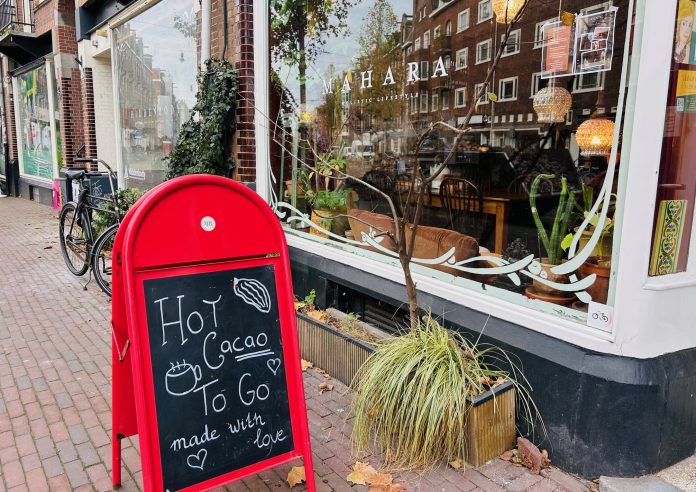 MAHARA
Hot
Cacao
To Go
made with
love